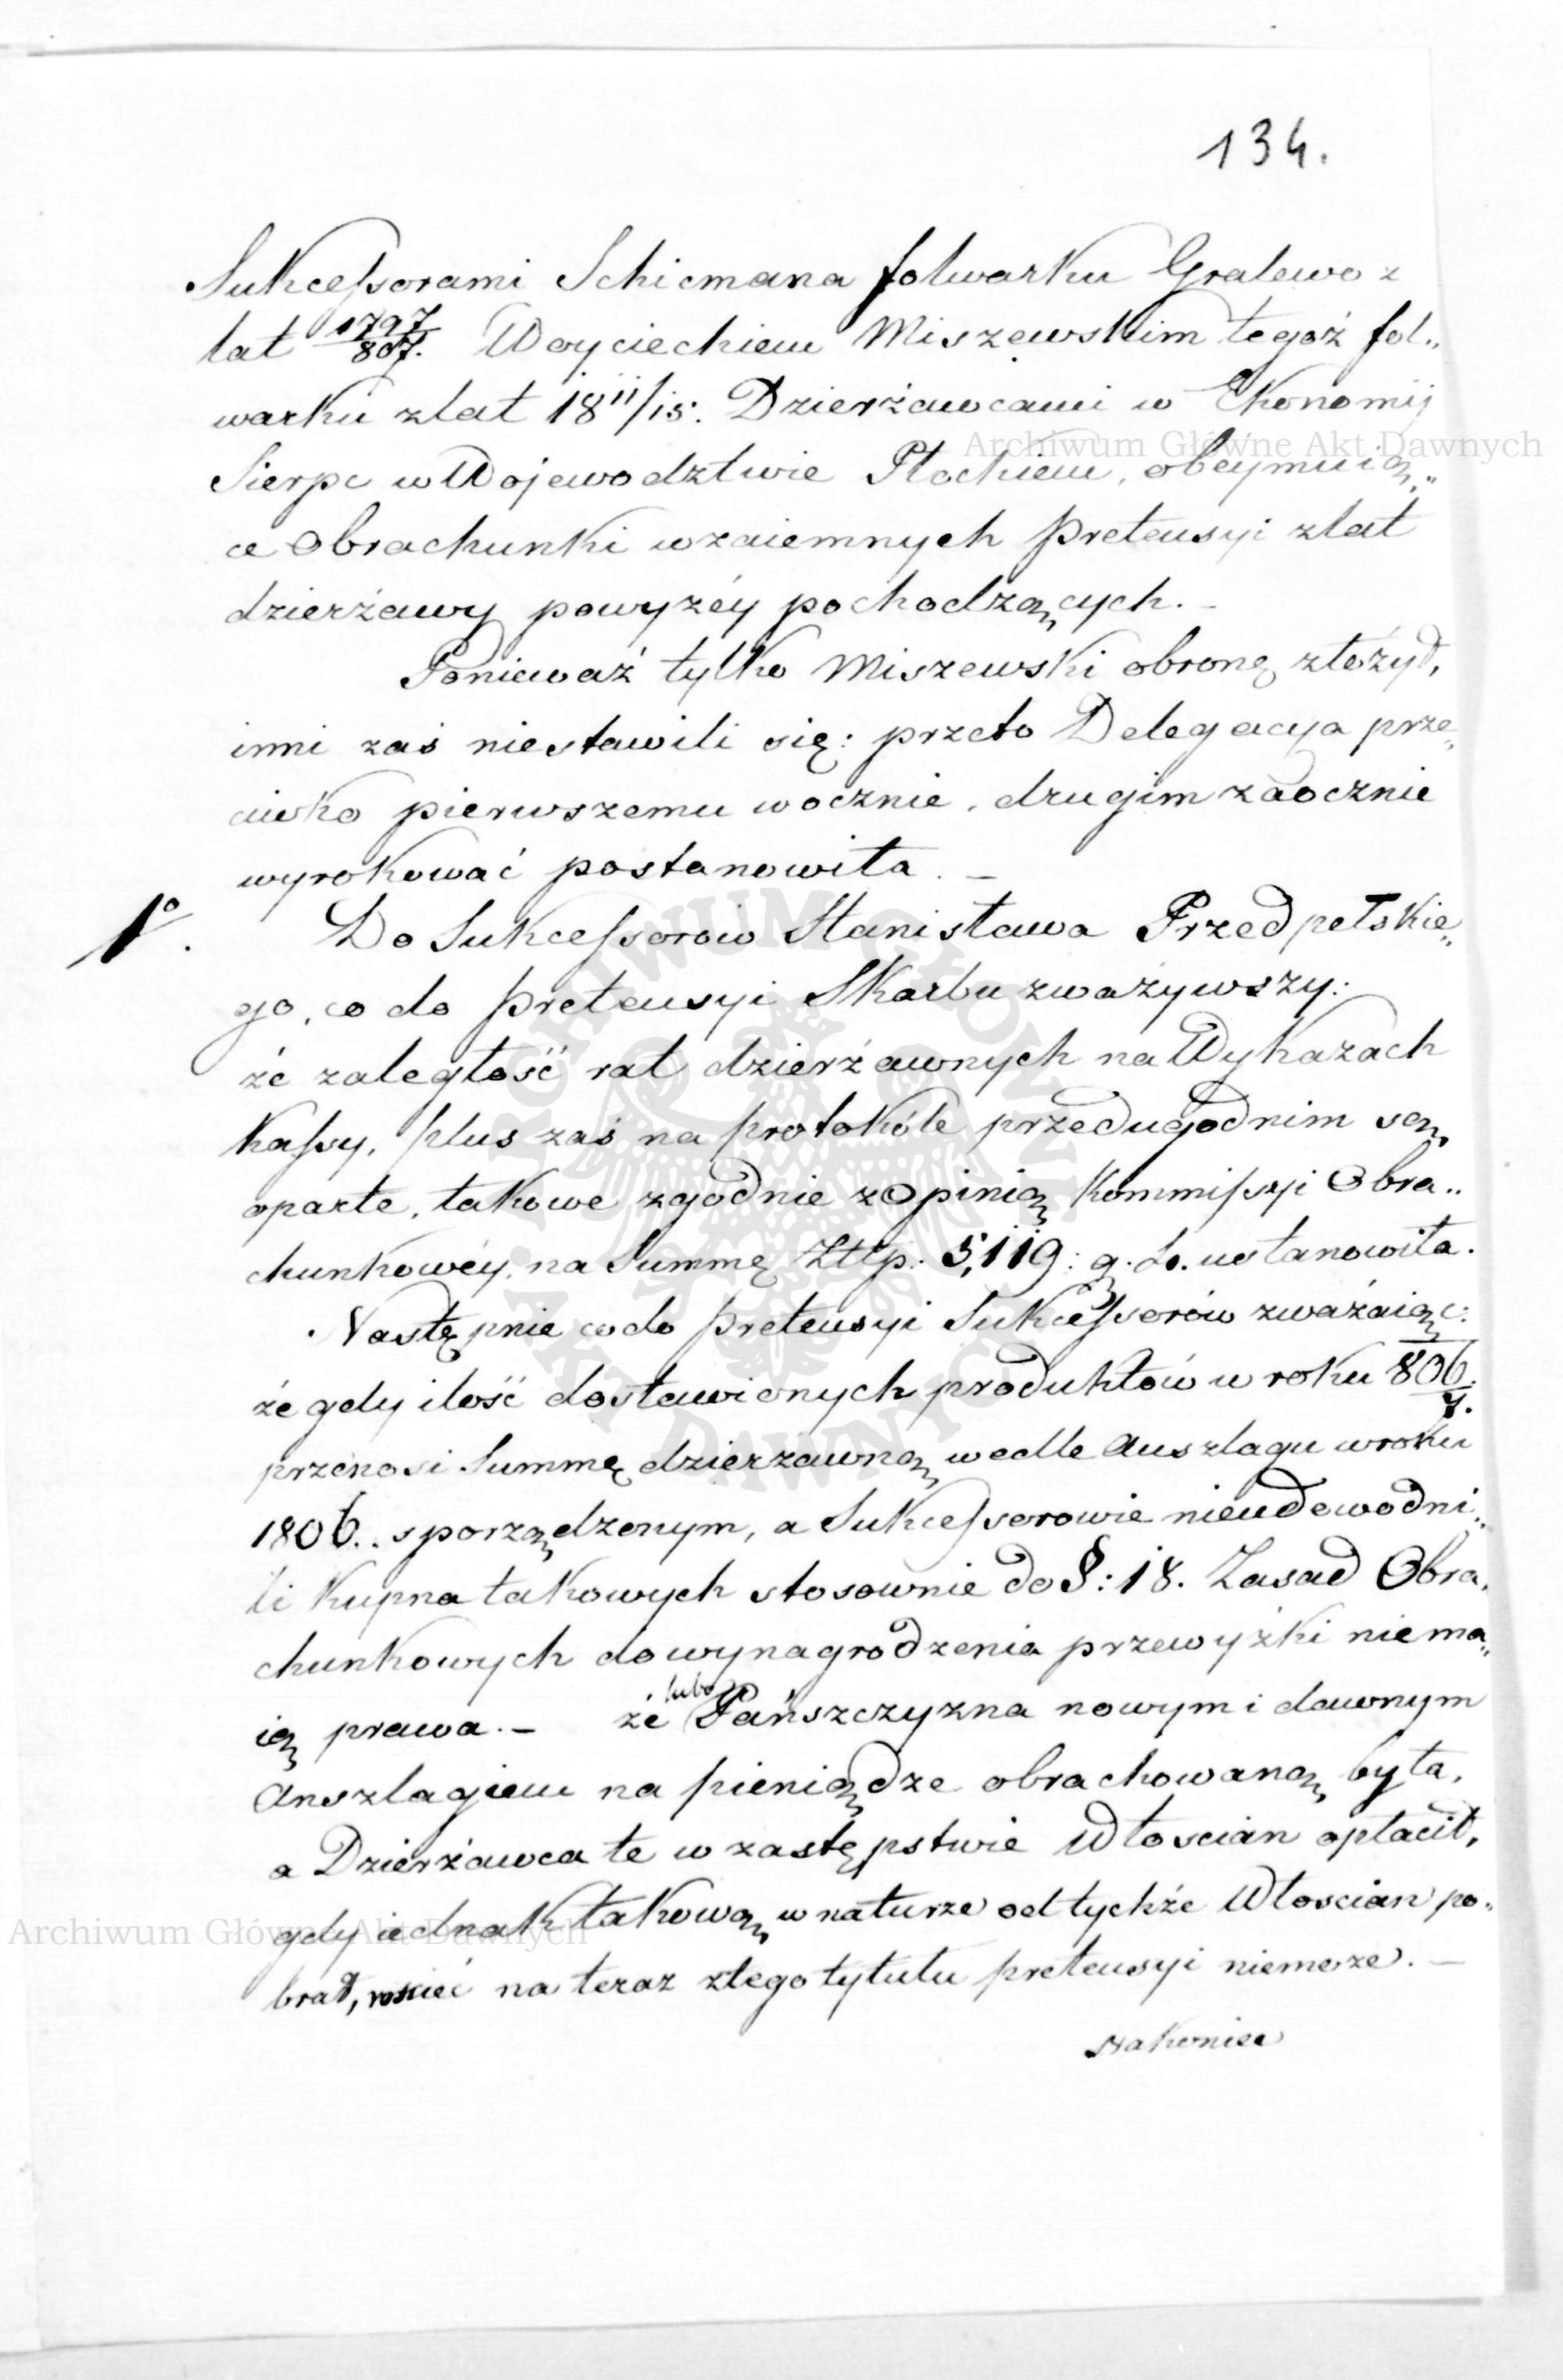 134.
Sukcessorami Schicmana folwarku Gralewo z
lat 1797/807. Woyciechiem Miszewskim tegoż fol„
warku zlat 18 11/15. Dzierżawcami w Ekonomij
Archiwum Główne Akt Dawnych
Sierpc w Wojewodztwie Płockiem, obeymuią„
ce Obrachunki wzaiemnych pretensyi zlat
dzierżawy powyżéy pochodzących. –
Ponieważ tylko Miszewski obronę złożył,
inni zaś niestawili się: przeto Delegacya prze„
ciwko pierwszemu wocznie, drugim zaocznie
wyrokować postanowiła. –
1o. Do Sukcessorow Stanisława Przedpełskie„
go, co do pretensyi Skarbu zważywszy:
że zaległość rat dzierżawnych na Wykazach
Kassy, plus zaś na protokóle przedugodnim są
oparte, takowe zgodnie z Opinią Kommissyi Obra„
chunkowéy, na Summę Złłp: 5,119: g. 20. ustanowiła.
Następnie co do pretensyi Sukcessorów zważaiąc:
że gdy ilość dostawionych produktów w roku 806/7.
przenosi Summę dzierzawną wedle Anszlagu w roku
1806. sporządzonym, a Sukcessorowie nieudowodni„
li kupna takowych stosownie do §: 18. Zasad Obra„
chunkowych do wynagrodzenia przewyżki niema„
ią prawa. – że lubo Pańszczyzna nowym i dawnym
Anszlagiem na pieniądze obrachowaną była,
a Dzierżawca te w zastępstwie Włoscian opłacił,
gdy iednak takową w naturze od tychże Włoscian po„
Archiwum Główne Akt Dawnych
brał, rościć na teraz ztego tytułu pretensyi niemoże. –
Nakoniec